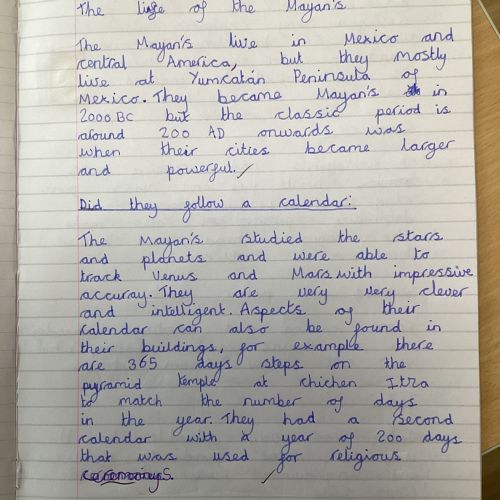 The life of the Mayan's
The Mayan's live in Mexico and
central America, but they mostly
live at Yumcatán Peninsula of
Mexico. They became Mayan's in
2000 BC but the classic period is
around 200 AD onwards was
when their cities became larger
and powerful.
Did they follow a calendar:
The Mayan's studied the stars
and planets and were able to
track Venus and Mars with impressive
accuray. They are very very clever
and intelligent. Aspects of their
calendar can also be found in
their buildings, for example there
are 365 days steps on the
pyramid temple at chichen Itza
to match the number of days
in the year. They had a second
calendar with a year of 200 days
that was used for religious